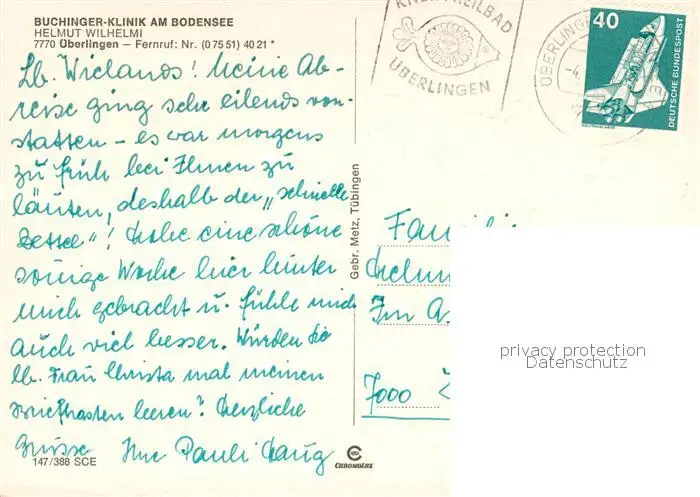 BUCHINGER-KLINIK AM BODENSEE
HELMUT WILHELMI
7770 Überlingen - Fernruf: Nr. (0 75 51) 40 21*
Lb. Wielands! Meine Ab-
reise ging sehr eilends von-
statten - es war morgens
zu früh bei Ihnen zu
läuten, deshalb der „schnelle
Zettel"! Habe eine schöne
sonnige Woche hier hinter
mich gebracht u. fühle mich
auch viel besser. Würden Sie
lb. Frau Christa mal meinen
Briefkasten leeren? Herzliche
Grüsse Ihre Pauli
147/388 SCE
CHROMOLUX
Gebr. Metz, Tübingen
HEILBAD
ÜBERLINGEN
ÜBERLINGEN
-4.
40
DEUTSCHE BUNDESPOST
Famili
Helmu
Im
7000
privacy protection
Datenschutz